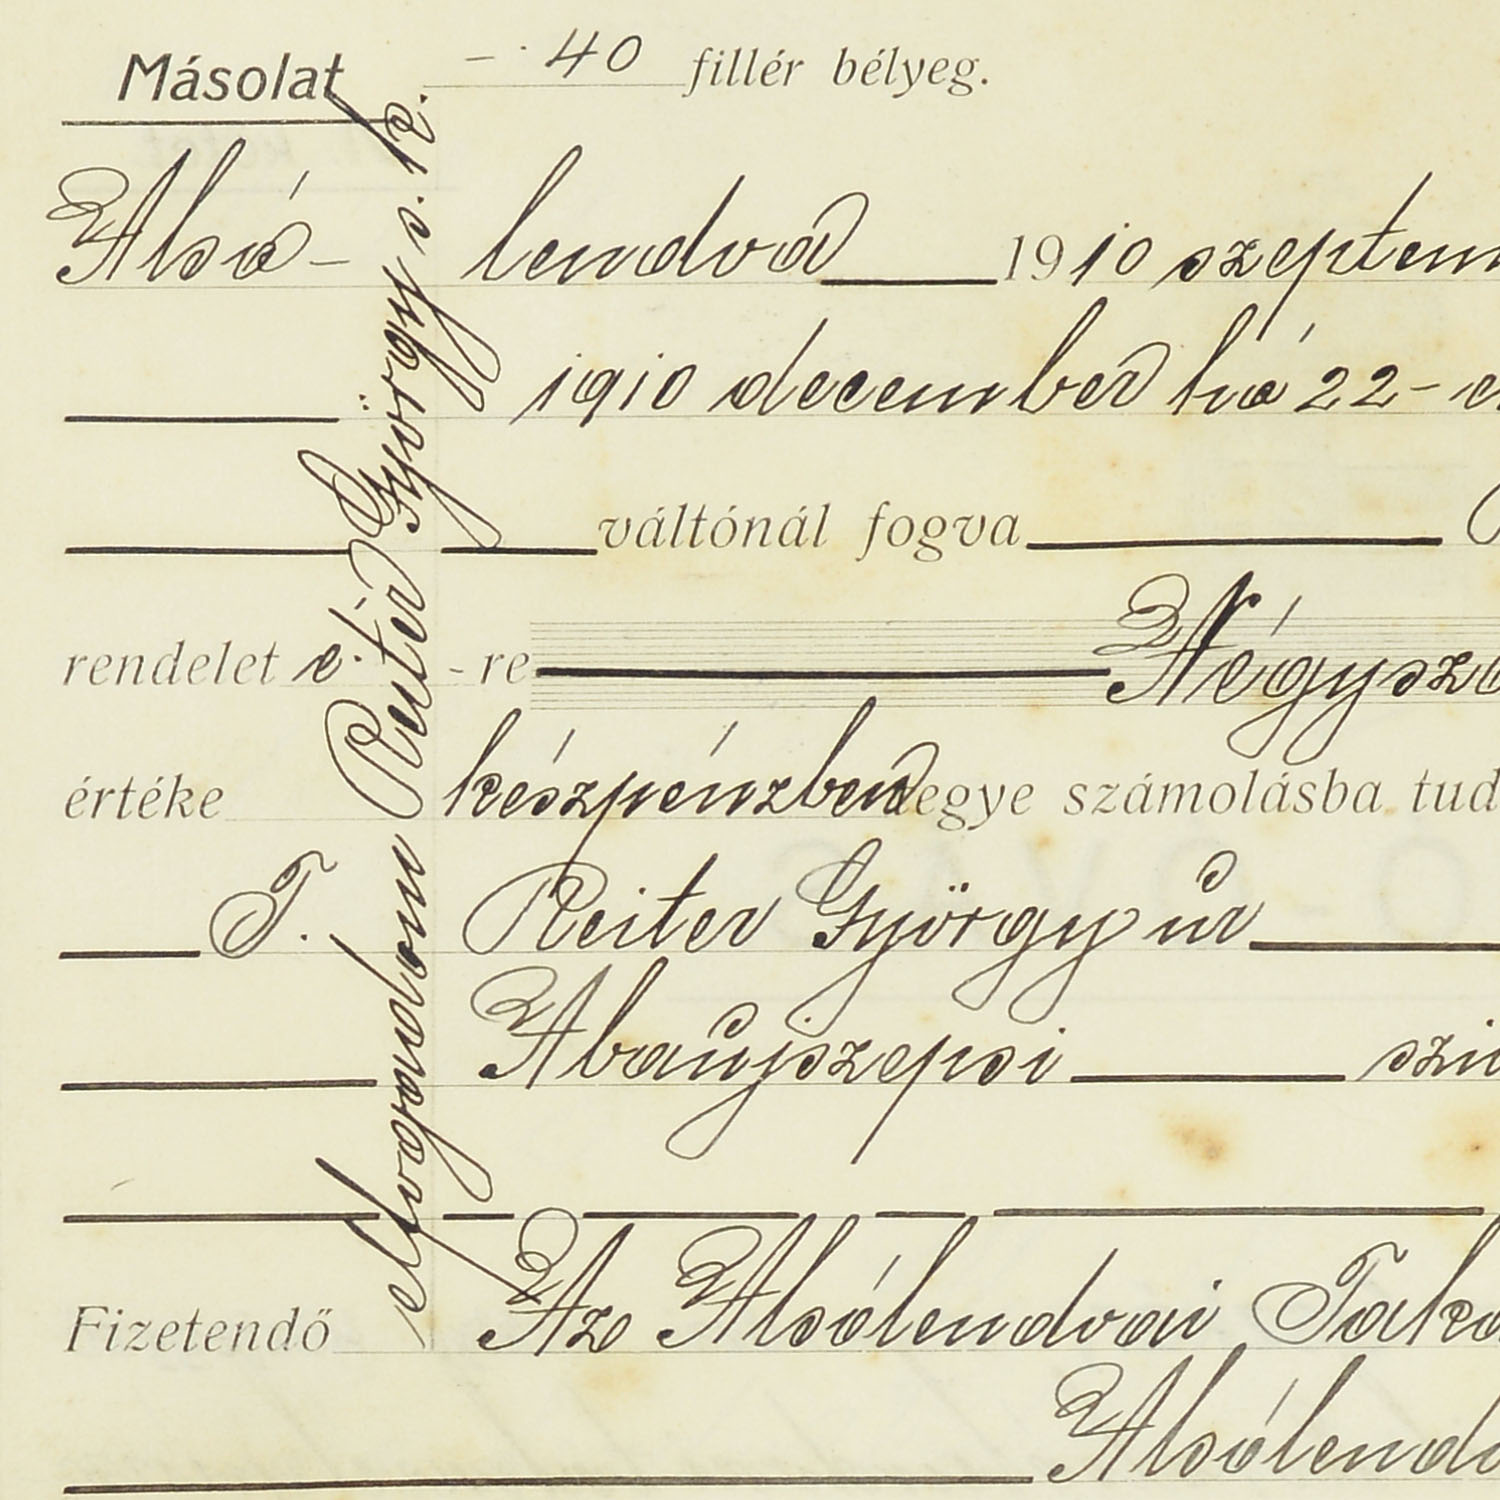 Másolat – · 40 fillér bélyeg.
Alsó- lendva 1910 szeptem
1910 december hó 22-
váltónál fogva
rendelet e. -re Négysz
értéke készpénzben egye számolásba tud
T. Reiter György úr
Abaújszepsi szi
Fizetendő Az Alsólendvai Taka
Alsólend
elfogadom Reiter György s. k.